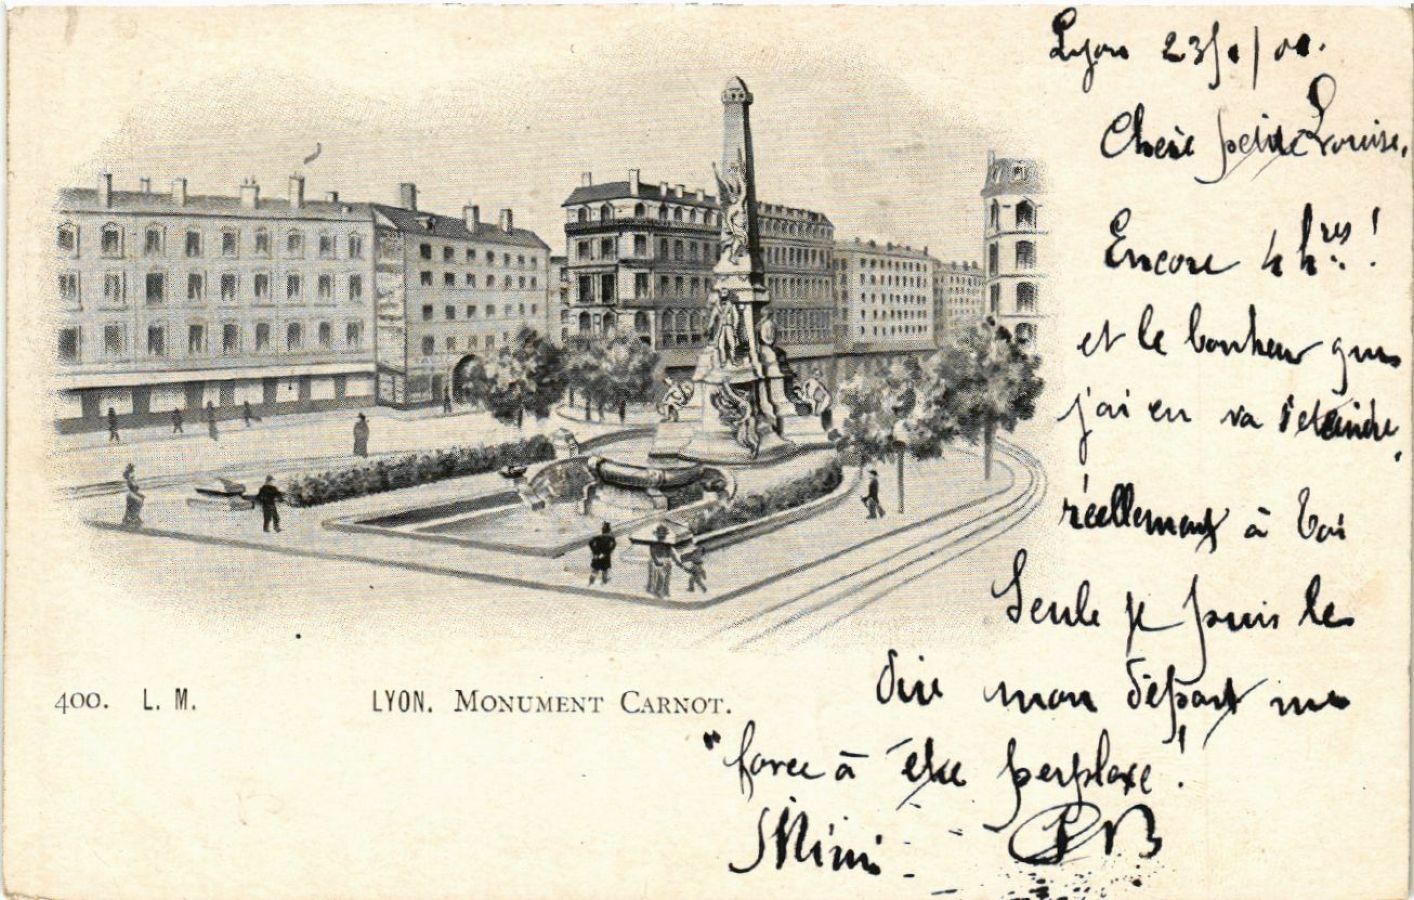 Lyon 23/1/00.
Chère petite Louise,
Encore 4 hres!
et le bonheur que
j'ai eu va s'éteindre,
réellement à toi
Seule je puis le
dire mon départ me
"force à être perplexe!
Mimi PB
400. L. M. LYON. MONUMENT CARNOT.